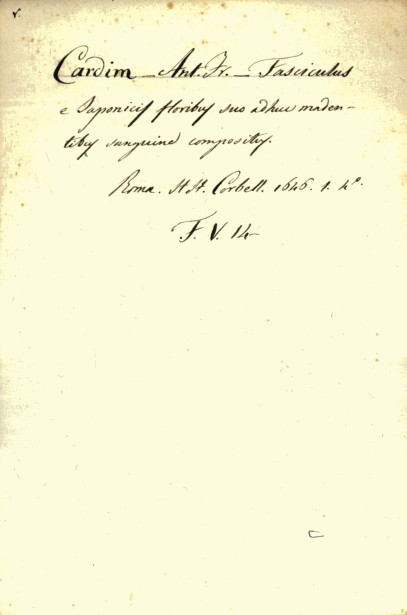 v.
Cardim - Ant. Fr. - Fasciculus
e Japonicis floribus suo adhuc maden-
tibus sanguine compositus.
Roma. HH. Corbell. 1646. 1. 4º.
F. V. 14